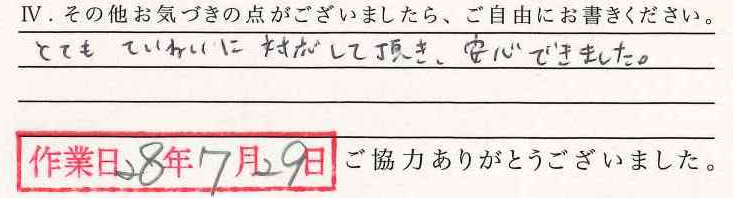 Ⅳ．その他お気づきの点がございましたら、ご自由にお書きください。
とても ていねいに 対応して頂き、安心できました。
作業日28年7月29日 ご協力ありがとうございました。